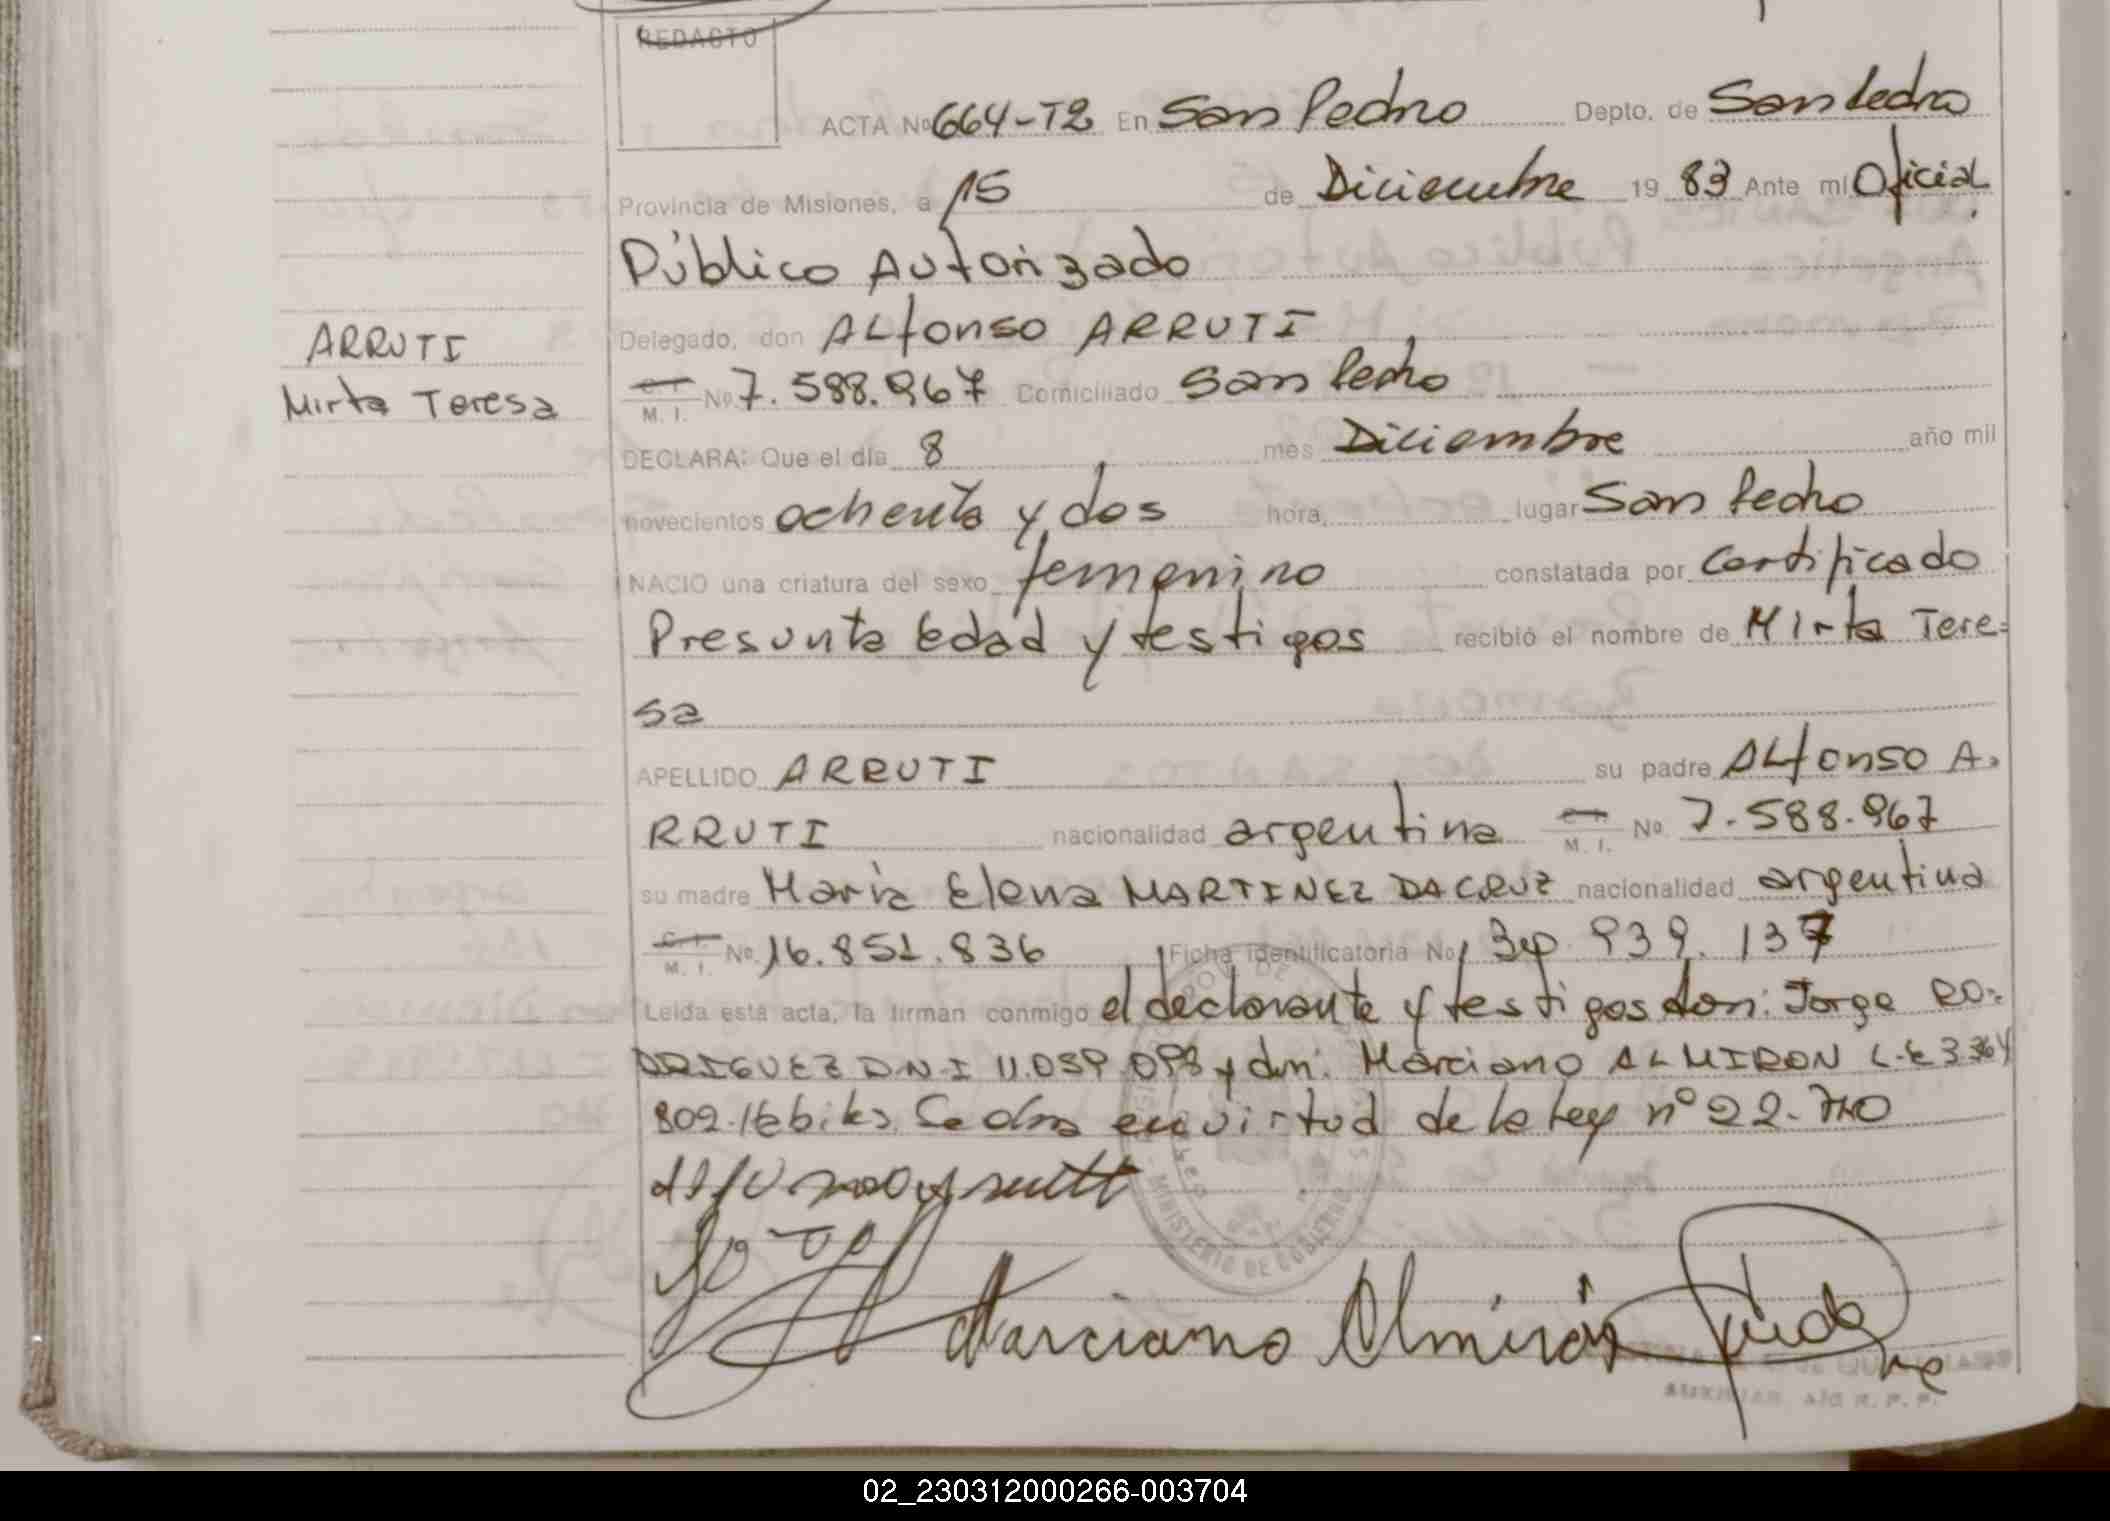 REDACTO
ACTA Nº 664-T2 En San Pedro Depto. de San Pedro
Provincia de Misiones, a 15 de Diciembre 19 83 Ante mí Oficial
Público Autorizado
ARRUTI
Mirta Teresa
Delegado, don ALfonso ARRUTI
C. I. M. I. Nº 7.588.967 Domiciliado San Pedro
DECLARA: Que el día 8 mes Diciembre año mil
novecientos ochenta y dos hora, lugar San Pedro
NACIO una criatura del sexo femenino constatada por Certificado
Presunta Edad y testigos recibió el nombre de Mirta Tere=
sa
APELLIDO ARRUTI su padre ALfonso A=
RRUTI nacionalidad argentina C. I. M. I. Nº 7.588.967
su madre María Elena MARTINEZ DACRUZ nacionalidad argentina
C. I. M. I. Nº 16.851.836 Ficha identificatoria Nº 939.137
Leida esta acta, la firman conmigo el declarante y testigos don: Jorge RO=
DRIGUEZ D.N.I 11.059.098 y don: Marciano ALMIRON L.E 3.364
802. en virtud de la Ley nº 22.740
Marciano Almirón
MINISTERIO DE GOBIERNO
AUXILIAR A/C R. P. P.
02_230312000266-003704